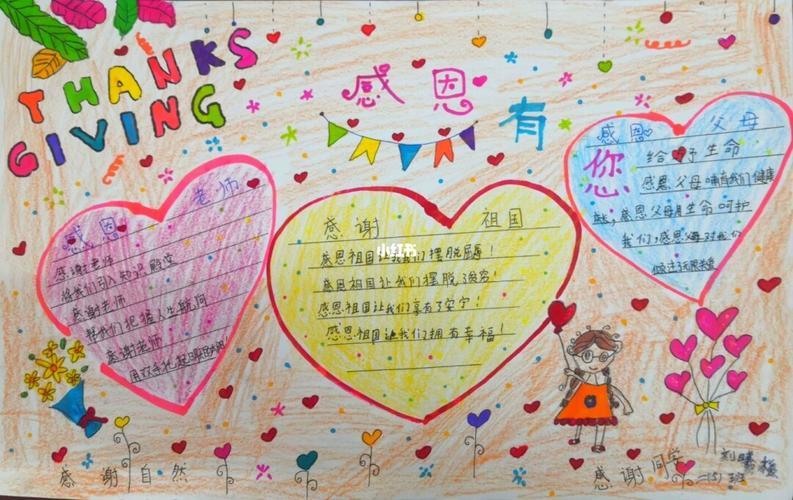 THANKS
GIVING
感恩有您
感恩老师
感谢老师
将我们引入知识殿堂
感谢老师
帮我们把握人生航向
感谢老师
用双手托起
感谢祖国
感恩祖国让我们摆脱屈辱!
感恩祖国让我们摆脱
感恩祖国让我们享有了安宁!
感恩祖国让我们拥有幸福!
小红书
感恩父母
给予生命
感恩父母哺育我们健康
感恩父母用生命呵护
我们,感恩父母对我们
感谢自然
感谢同学
二(5)班